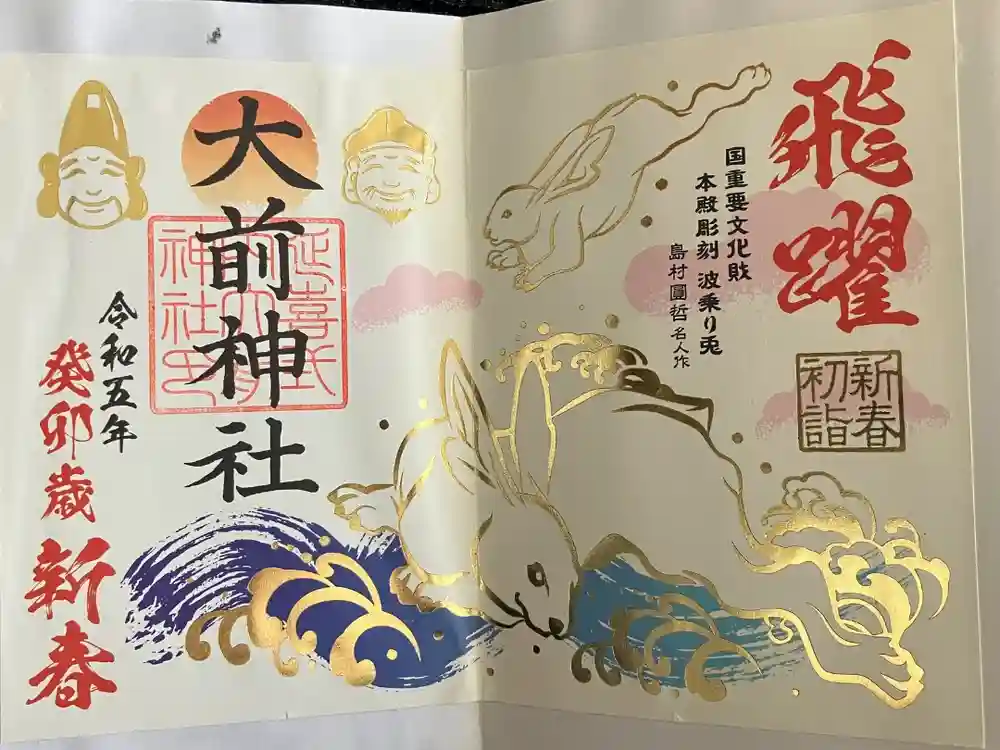 飛躍
国重要文化財
本殿彫刻 波乗り兎
島村圓哲名人作
新春
初詣
大前神社
延喜式
神社印
令和五年
癸卯歳 新春